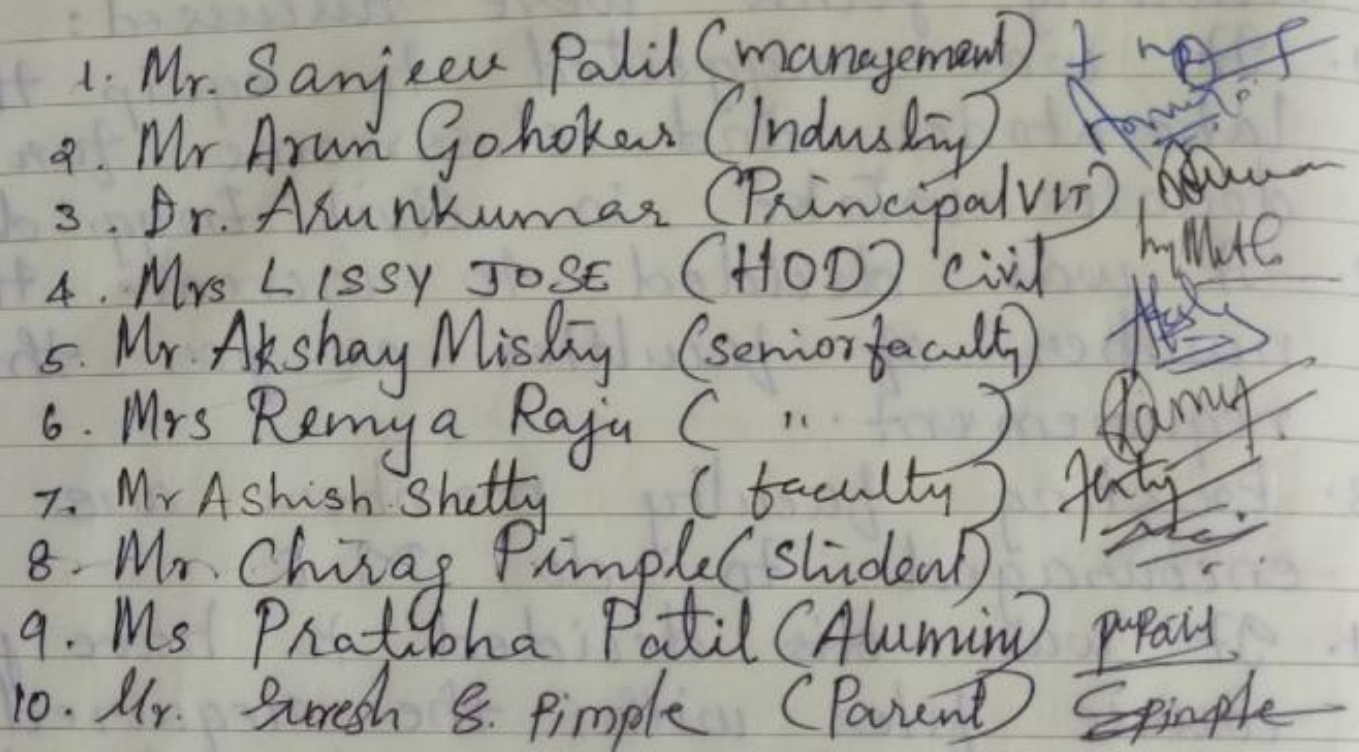 1. Mr. Sanjeev Patil (management)
2. Mr Arun Gohokar (Industry)
3. Dr. Arunkumar (Principal VIT)
4. Mrs LISSY JOSE (HOD) civil
5. Mr. Akshay Mistry (senior faculty)
6. Mrs Remya Raju ( " )
7. Mr Ashish Shetty (faculty)
8. Mr. Chirag Pimple (Student)
9. Ms Pratibha Patil (Alumini) pupatil
10. Mr. Suresh S. Pimple (Parent) Spimple